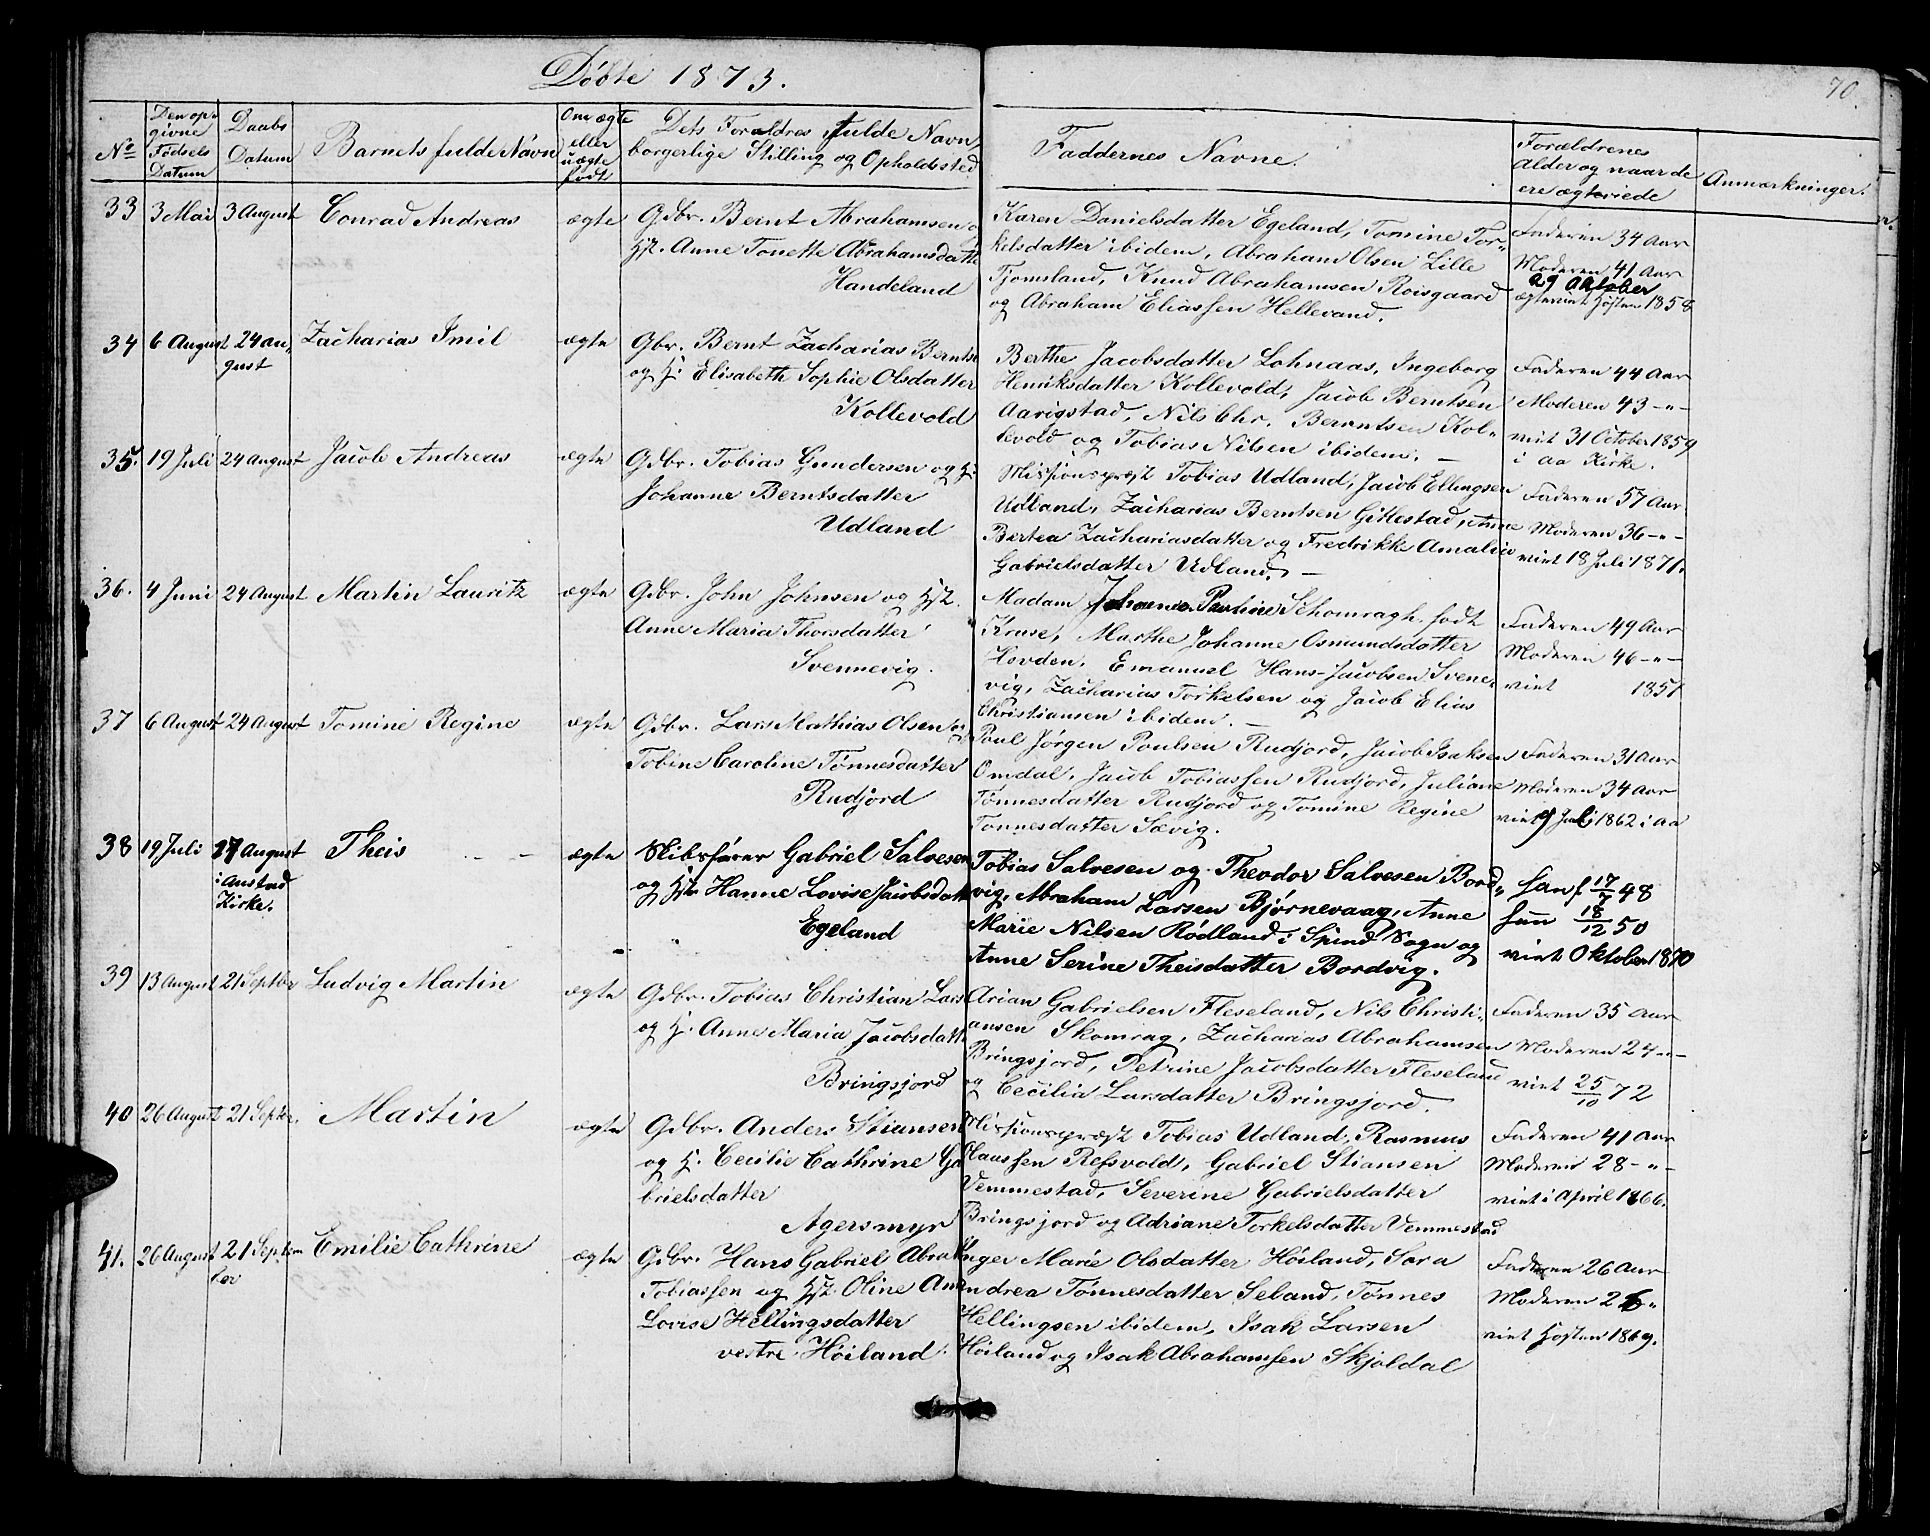 Døbte 1873.
70.
No
Den op-
givne
Fødsels
Datum
Daabs
Datum
Barnets fulde Navn
Om ægte
eller
uægte
født
Dets Forældres fulde Navn,
borgerlige Stilling og Opholdssted
Faddernes Navne.
Forældrenes
Alder og naar de
ere ægteviede
Anmærkninger.
33
3 Mai
3 August
Conrad Andreas
ægte
Gdbr. Bernt Abrahamsen o
Hst. Anne Tonette Abrahamsdatte
Handeland
Karen Danielsdatter Egeland, Tomine Tor-
kelsdatter ibidem, Abraham Olsen Lille
Fjomsland, Knud Abrahamsen Roisgaard
og Abraham Eliassen Hellevand.
Faderen 34 Aar
Moderen 41 Aar
29 Oktober
ægteviet Høsten 1858
34
6 August
24 Au-
gust
Zacharias Imil
ægte
Gbr. Bernt Zacharias Bernts
og H: Elisabeth Sophie Olsdatter
Kollevold
Berthe Jacobsdatter Lohnaas, Ingeborg
Henriksdatter Kollevold, Jacob Berntsen
Aarigstad, Nils Chr. Berntsen Kol-
levold og Tobias Nilsen ibidem. —
Faderen 44 Aar
Moderen 43 -"-
viet 31 October 1859
i Aa Kirke.
35.
19 Juli
24 August
Jacob Andreas
ægte
Gdbr. Tobias Gundersen og H:
Johanne Berntsdatter
Udland
Missionspræst Tobias Udland, Jacob Ellingsen
Udland, Zacharias Berntsen Gitlestad, Anne
Bertea Zachariasdatter og Fredrikke Amalie
Gabrielsdatter Udland. —
Faderen 57 Aar
Moderen 36 -"-
viet 18 Juli 1871.
36.
4 Juni
24 August
Martin Lauritz
ægte
Gdbr. John Johnsen og Hst.
Anne Maria Thorsdatter
Svennevig.
Madam Johanne Pauline Schomragh. født
Kruse, Marthe Johanne Osmundsdatter
Hovden, Emanuel Hans-Jacobsen Svene-
vig, Zacharias Torkelsen og Jacob Elias
Christiansen ibidem. —
Faderen 49 Aar
Moderen 46 -"-
viet 1851
37
6 August
24 August
Tomine Regine
ægte
Gdbr. Lars Mathias Olsen og
Tobine Caroline Tønnesdatter
Rudjord
Poul Jørgen Poulsen Rudjord, Jacob Isaksen
Omdal, Jacob Tobiassen Rudjord, Juliane
Tønnesdatter Rudjord og Tomine Regine
Tønnesdatter Sævig.
Faderen 31 Aar
Moderen 34 Aar
viet 9 Juli 1862 i Aa
38
19 Juli
27 August
i Austad
Kirke.
Theis
ægte
Skibsfører Gabriel Salvesen
og Hst. Hanne Lovise Jacobsdatt
Egeland
Tobias Salvesen og Theodor Salvesen Bord-
vig, Abraham Larsen Bjørnevaag, Anne
Marie Nilsen Rødland i Spind Sogn og
Anne Serine Theisdatter Bordvig.
han f 17/7 48
hun 18/12 50
viet Oktober 1870
39
13 August
21 Septbr
Ludvig Martin
ægte
Gdbr. Tobias Christian Lars
og H. Anne Maria Jacobsdatt
Bringsjord
Arian Gabrielsen Fleseland, Nils Christi-
ansen Skomrag, Zacharias Abrahamsen
Bringsjord, Petrine Jacobsdatter Fleseland
og Cecilia Larsdatter Bringsjord.
Faderen 35 Aar
Moderen 24 -"-
viet 25/10 72
40
26 August
21 Septbr.
Martin
ægte
Gdbr. Anders Stiansen
og H. Cecilie Cathrine Ga
brielsdatter
Agersmyr
Missionspræst Tobias Udland, Rasmus
Olaussen Refsvold, Gabriel Stiansen
Vemmestad, Severine Gabrielsdatter
Bringsjord og Adriane Torkelsdatter Vemmestad
Faderen 41 Aar
Moderen 28 -"-
viet i April 1866.
41.
26 August
21 Septem
ber
Emilie Cathrine
ægte
Gdbr. Hans Gabriel Abrah
Tobiassen og Hst. Oline Ann
Lovise Hellingsdatter
vestre Høiland.
Inger Marie Olsdatter Høiland, Sara
Andrea Tønnesdatter Seland, Tønnes
Hellingsen ibidem, Isak Larsen
Høiland og Isak Abrahamsen Skjoldal
Faderen 26 Aar
Moderen 26 "
viet Høsten 1869.